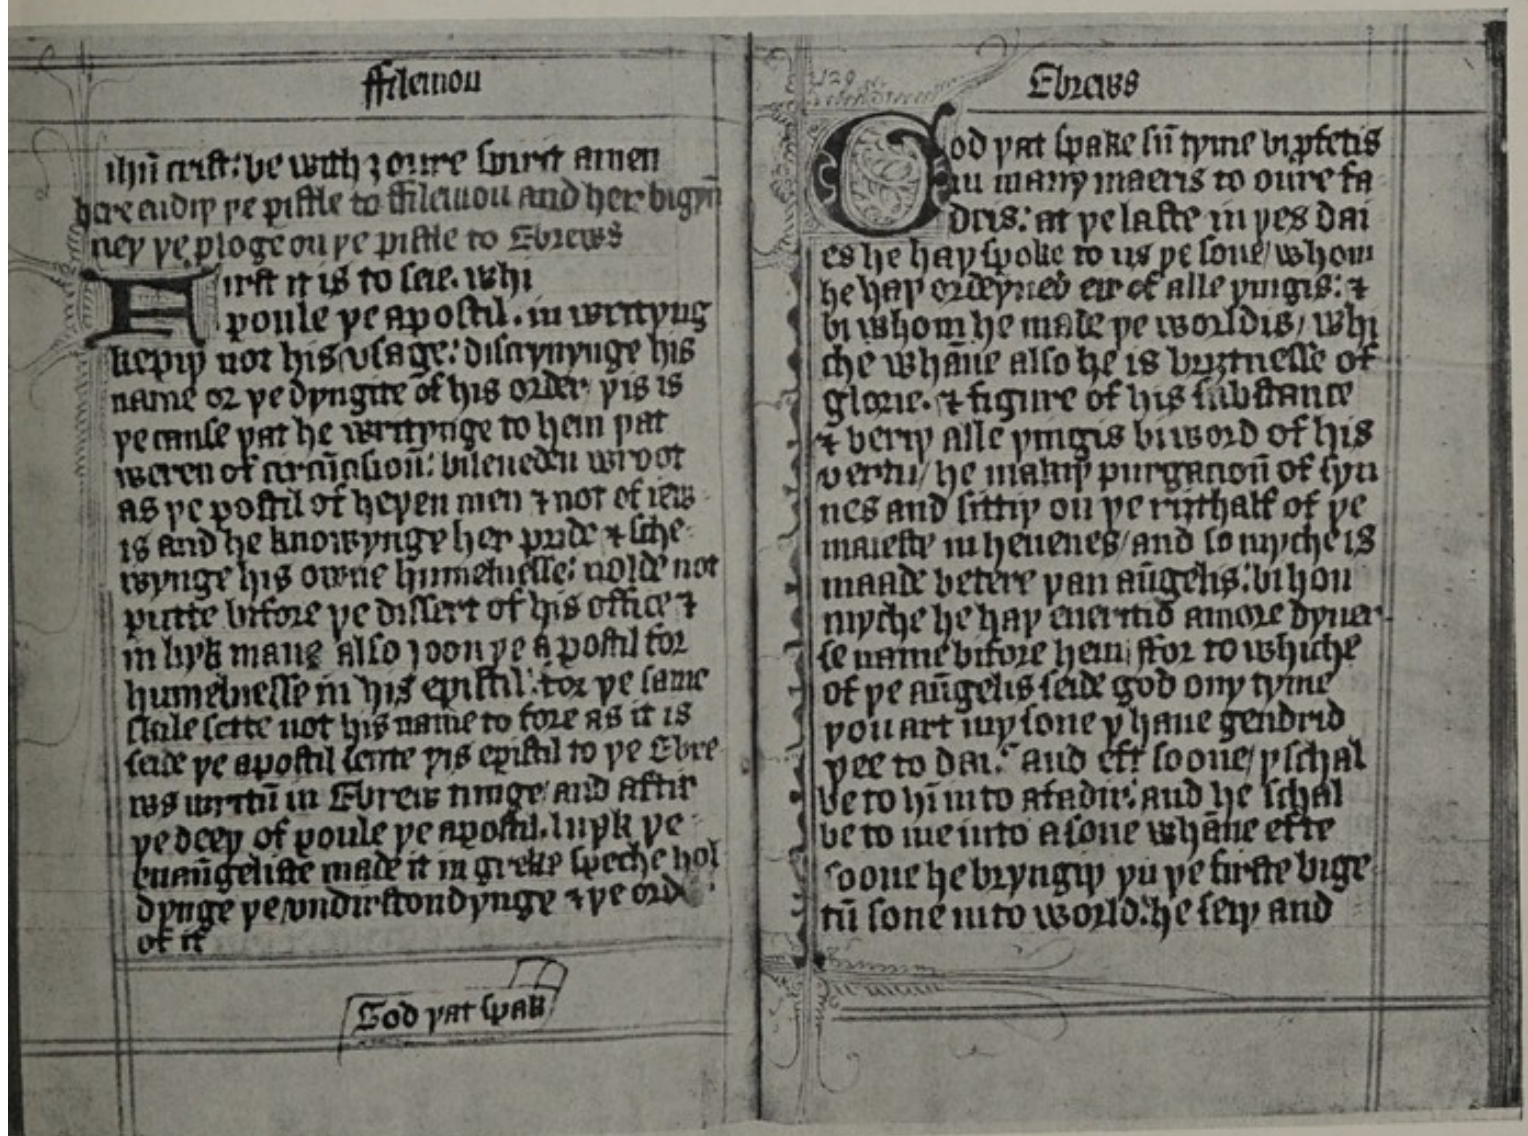 ffilemon
ihū crist: be with ȝoure spirit amen
here endiþ þe pistle to ffilemon and her bigyn
neþ þe ploge on þe pistle to Ebrews
First it is to seie. whi
poule þe apostil. in writyng
kepiþ not his vsage: discryuynge his
name or þe dyngite of his order þis is
þe cause þat he writynge to hem þat
weren of circūcisioū: bileueden wroot
as þe postil of heþen men ⁊ not of iew
is and he knowynge her pride ⁊ sche
wynge his owne humelnesse: nolde not
putte bifore þe dissert of his office ⁊
in lijk maner also joon þe apostil for
humelnesse in his epistil: for þe same
skile sette not his name to fore as it is
seide þe apostil sente þis epistil to þe Ebre
ws writū in Ebrew tunge and aftir
þe deeþ of poule þe apostil. luyk þe
euaūgeliste made it in greke speche hol
dynge þe vndirstondynge ⁊ þe ord
of it
God þat spak
129
Ebrews
God þat spake sū tyme bi pfetis
in many maeris to oure fa
dris: at þe laste in þes dai
es he haþ spoke to us þe sone/ whom
he haþ ordeyned eir of alle þingis: ⁊
bi whom he made þe worldis/ whi
che whāne also he is briȝtnesse of
glorie. ⁊ figure of his substance
⁊ beriþ alle þingis bi word of his
vertu/ he makiþ purgacioū of syn
nes and sittiþ on þe riȝthalf of þe
maieste in heuenes/ and so myche is
maade betere þan aūgelis: bi hou
myche he haþ eneritid a more dyuer
se name bifore hem/ ffor to whiche
of þe aūgelis seide god ony tyme
þou art my sone y haue gendrid
þee to dai: and eft soone/ y schal
be to hī in to a fadir: and he schal
be to me in to a sone whāne efte
soone he bryngiþ yn þe firste bige
tū sone in to world: he seiþ and